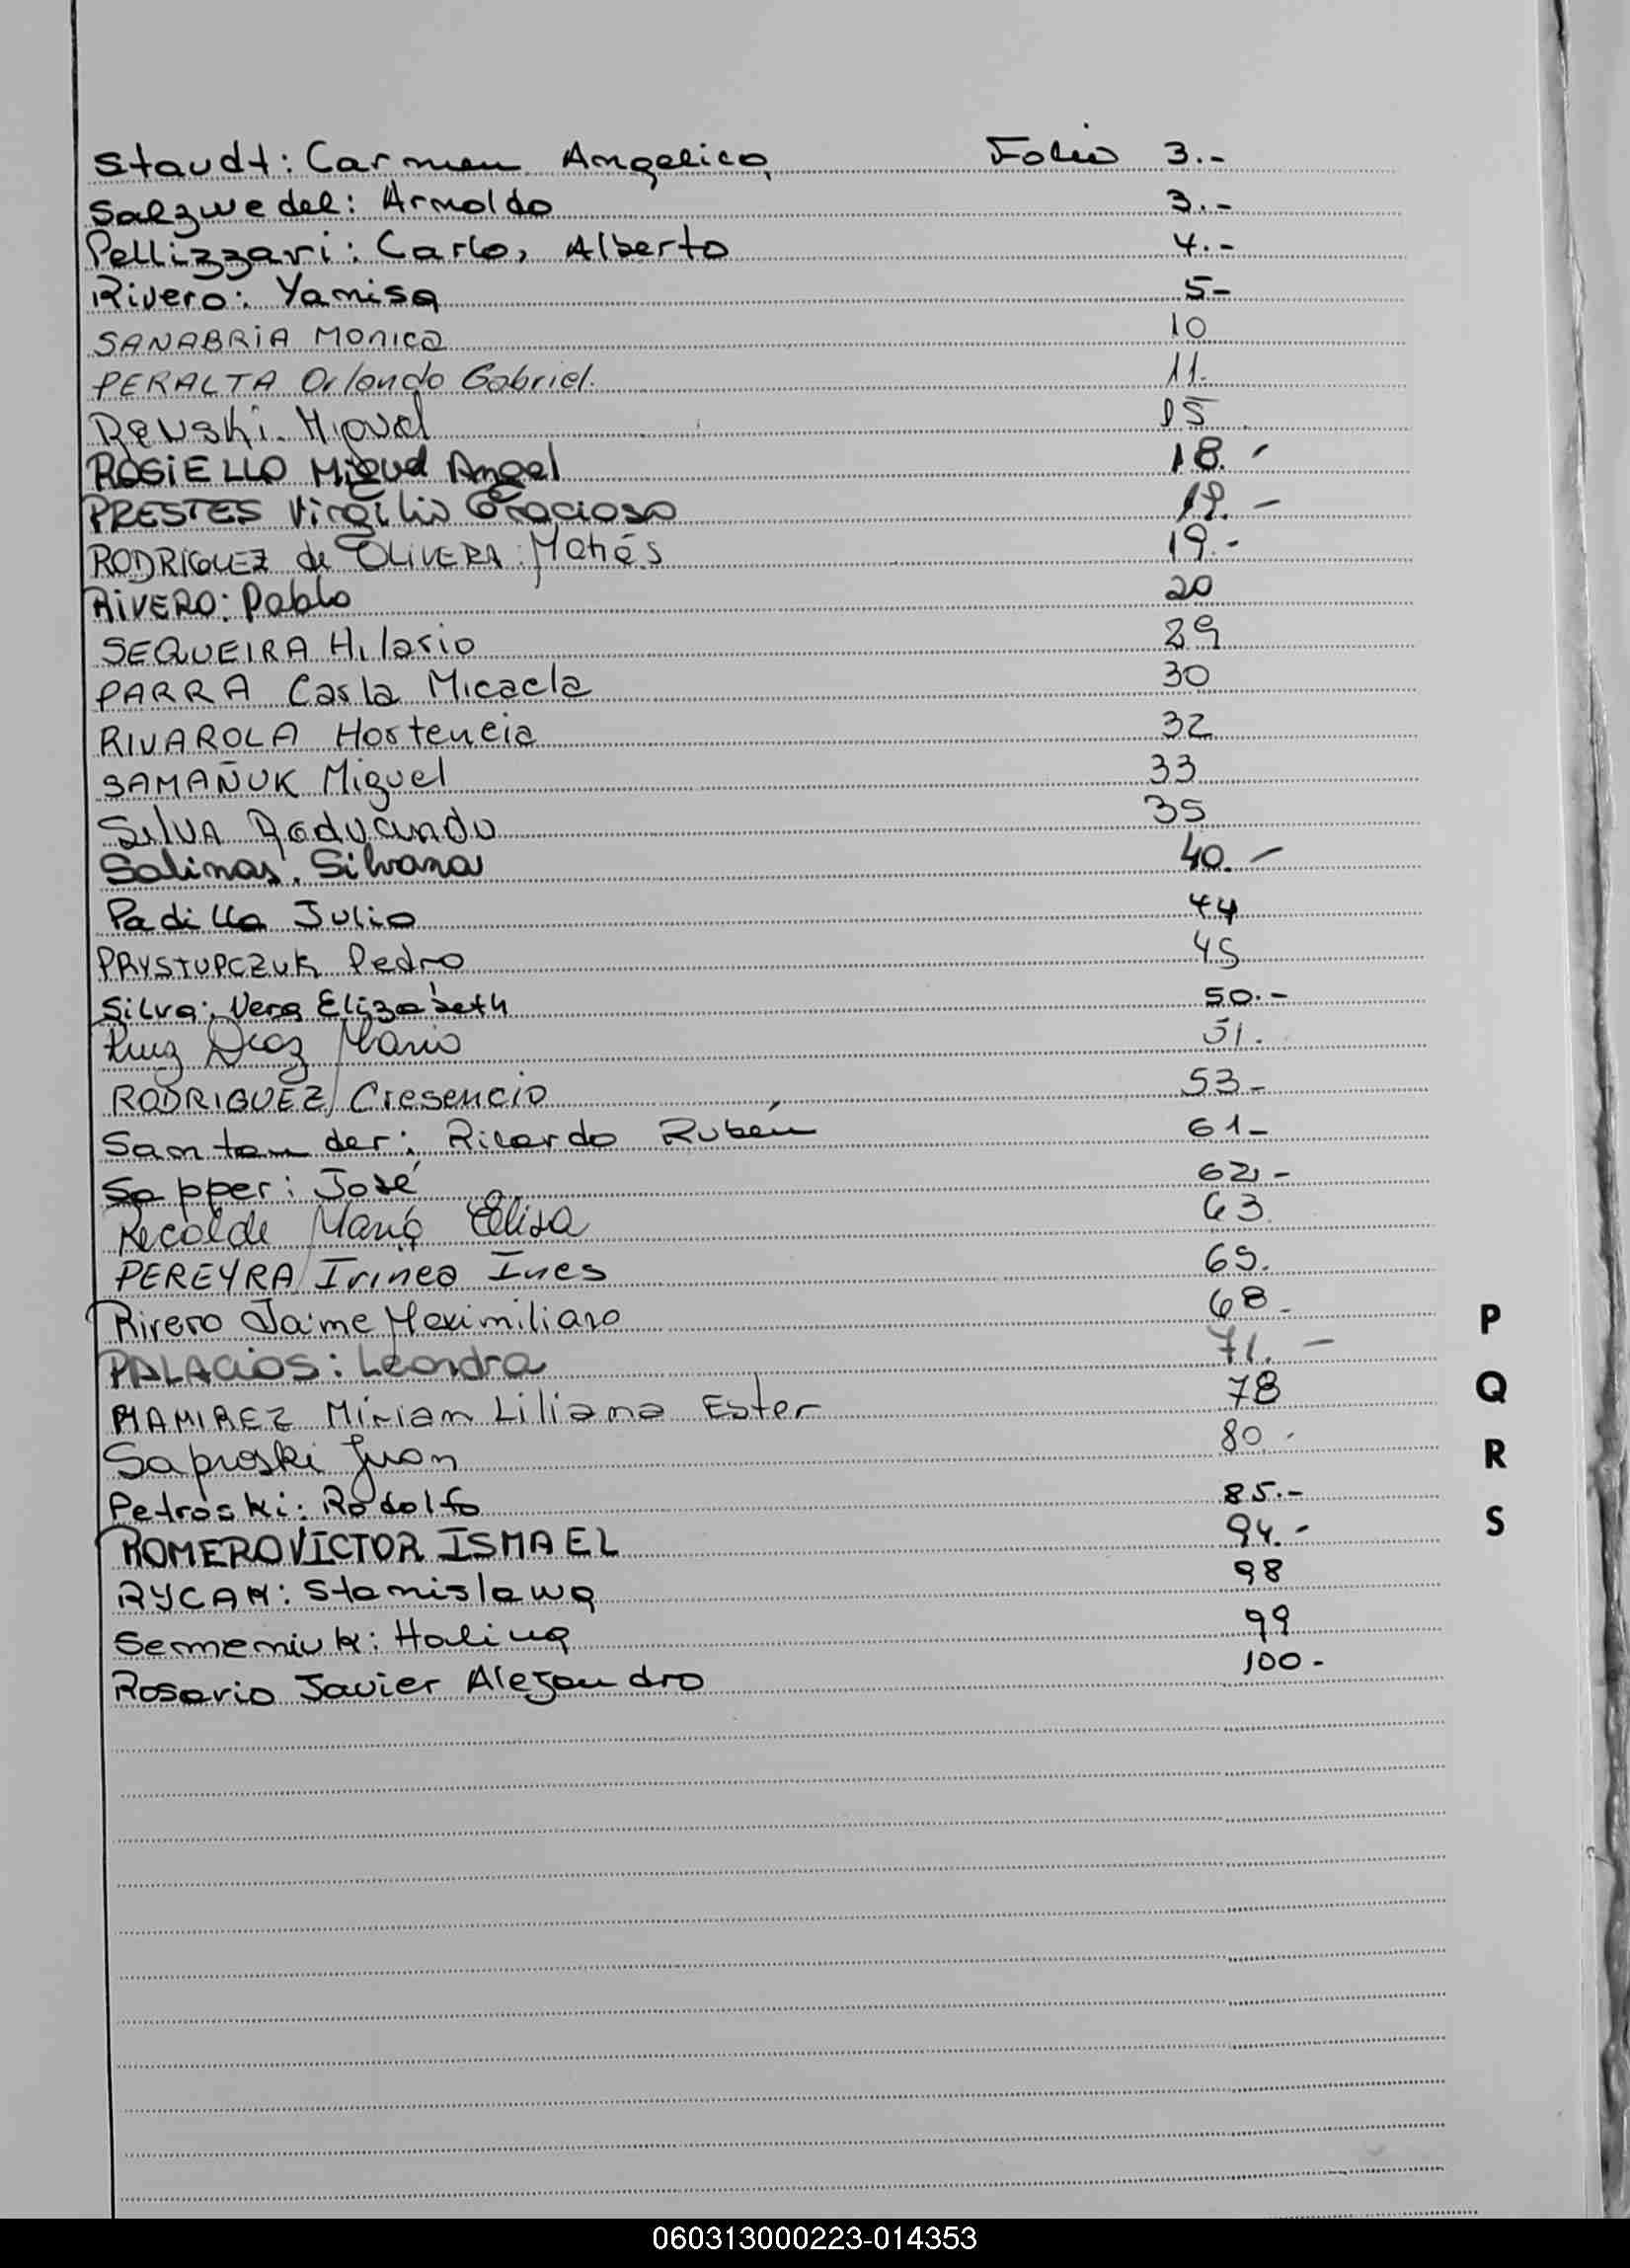 Staudt: Carmen Angelica Folio 3.-
Salzwedel: Arnoldo 3.-
Pellizzari: Carlo, Alberto 4.-
Rivero: Yanisa 5-
SANABRIA Monica 10
PERALTA Orlando Gabriel. 11.
Renski. Miguel 15
ROSIELLO Miguel Angel 18.-
PRESTES Virgilio Gracioso 19.-
RODRIGUEZ de OLIVERA: Matiés 19.-
RIVERO: Pablo 20
SEQUEIRA Hilario 29
PARRA Carla Micaela 30
RIVAROLA Hortencia 32
SAMAÑUK Miguel 33
SILVA 35
Salinas, Silvana 40.-
Padilla Julio 44
PRYSTUPCZUK Pedro 45
Silva: Vera Elizabeth 50.-
Ruiz Diaz Mario 51.
RODRIGUEZ Cresencio 53.-
Santander: Ricardo Rubén 61-
Sapper: José 62.-
Recalde María Elisa 63.
PEREYRA Irinea Ines 65.
Rivero Jaime Maximiliano 68.-
PALACIOS: Leandra 71.-
P
RAMIREZ Mirian Liliana Ester 78
Q
Saproski Juan 80.
R
Petroski: Rodolfo 85.-
S
ROMERO VICTOR ISMAEL 94.-
RYCAK: Stanislawa 98
Semeniuk: Halina 99
Rosario Javier Alejandro 100-
060313000223-014353